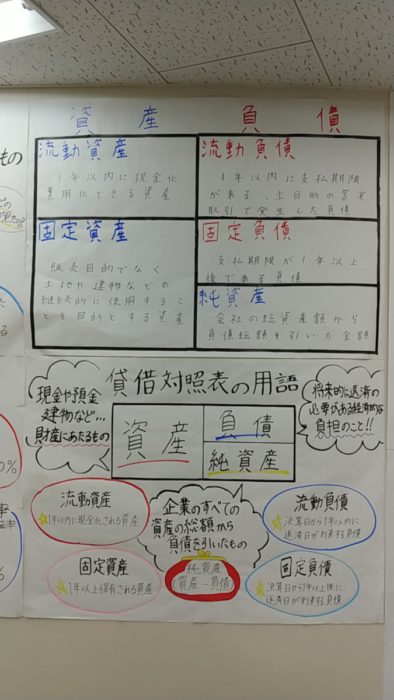 資産
負債
流動資産
1年以内に現金化
費用化できる資産
流動負債
1年以内に支払期限
が来る、主目的の営業
取引で発生した負債
固定資産
販売目的でなく
土地や建物などの
継続的に使用するこ
とを目的とする資産
固定負債
支払期限が1年以上
後である負債
純資産
会社の総資産額から
負債総額を引いた金額
貸借対照表の用語
現金や預金
建物など…
財産にあたるもの
将来的に返済の
必要がある経済的な
負担のこと!!
資産
負債
純資産
流動資産
1年以内に現金化される資産
企業のすべての
資産の総額から
負債を引いたもの
流動負債
決算日から1年以内に
返済日が到来する負債
固定資産
1年以上保有される資産
純資産
資産-負債
固定負債
決算日から1年以上後に
返済日が到来する負債